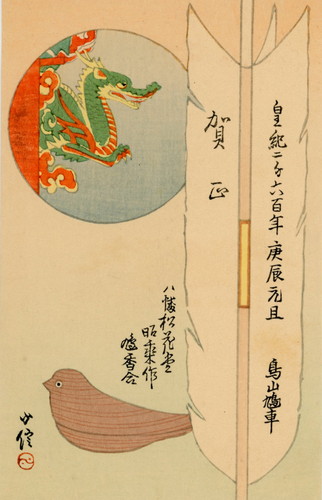 皇紀二千六百年 庚辰元旦
鳥山鳩車
賀正
八幡松花堂
昭乗作
鳩香合
少信